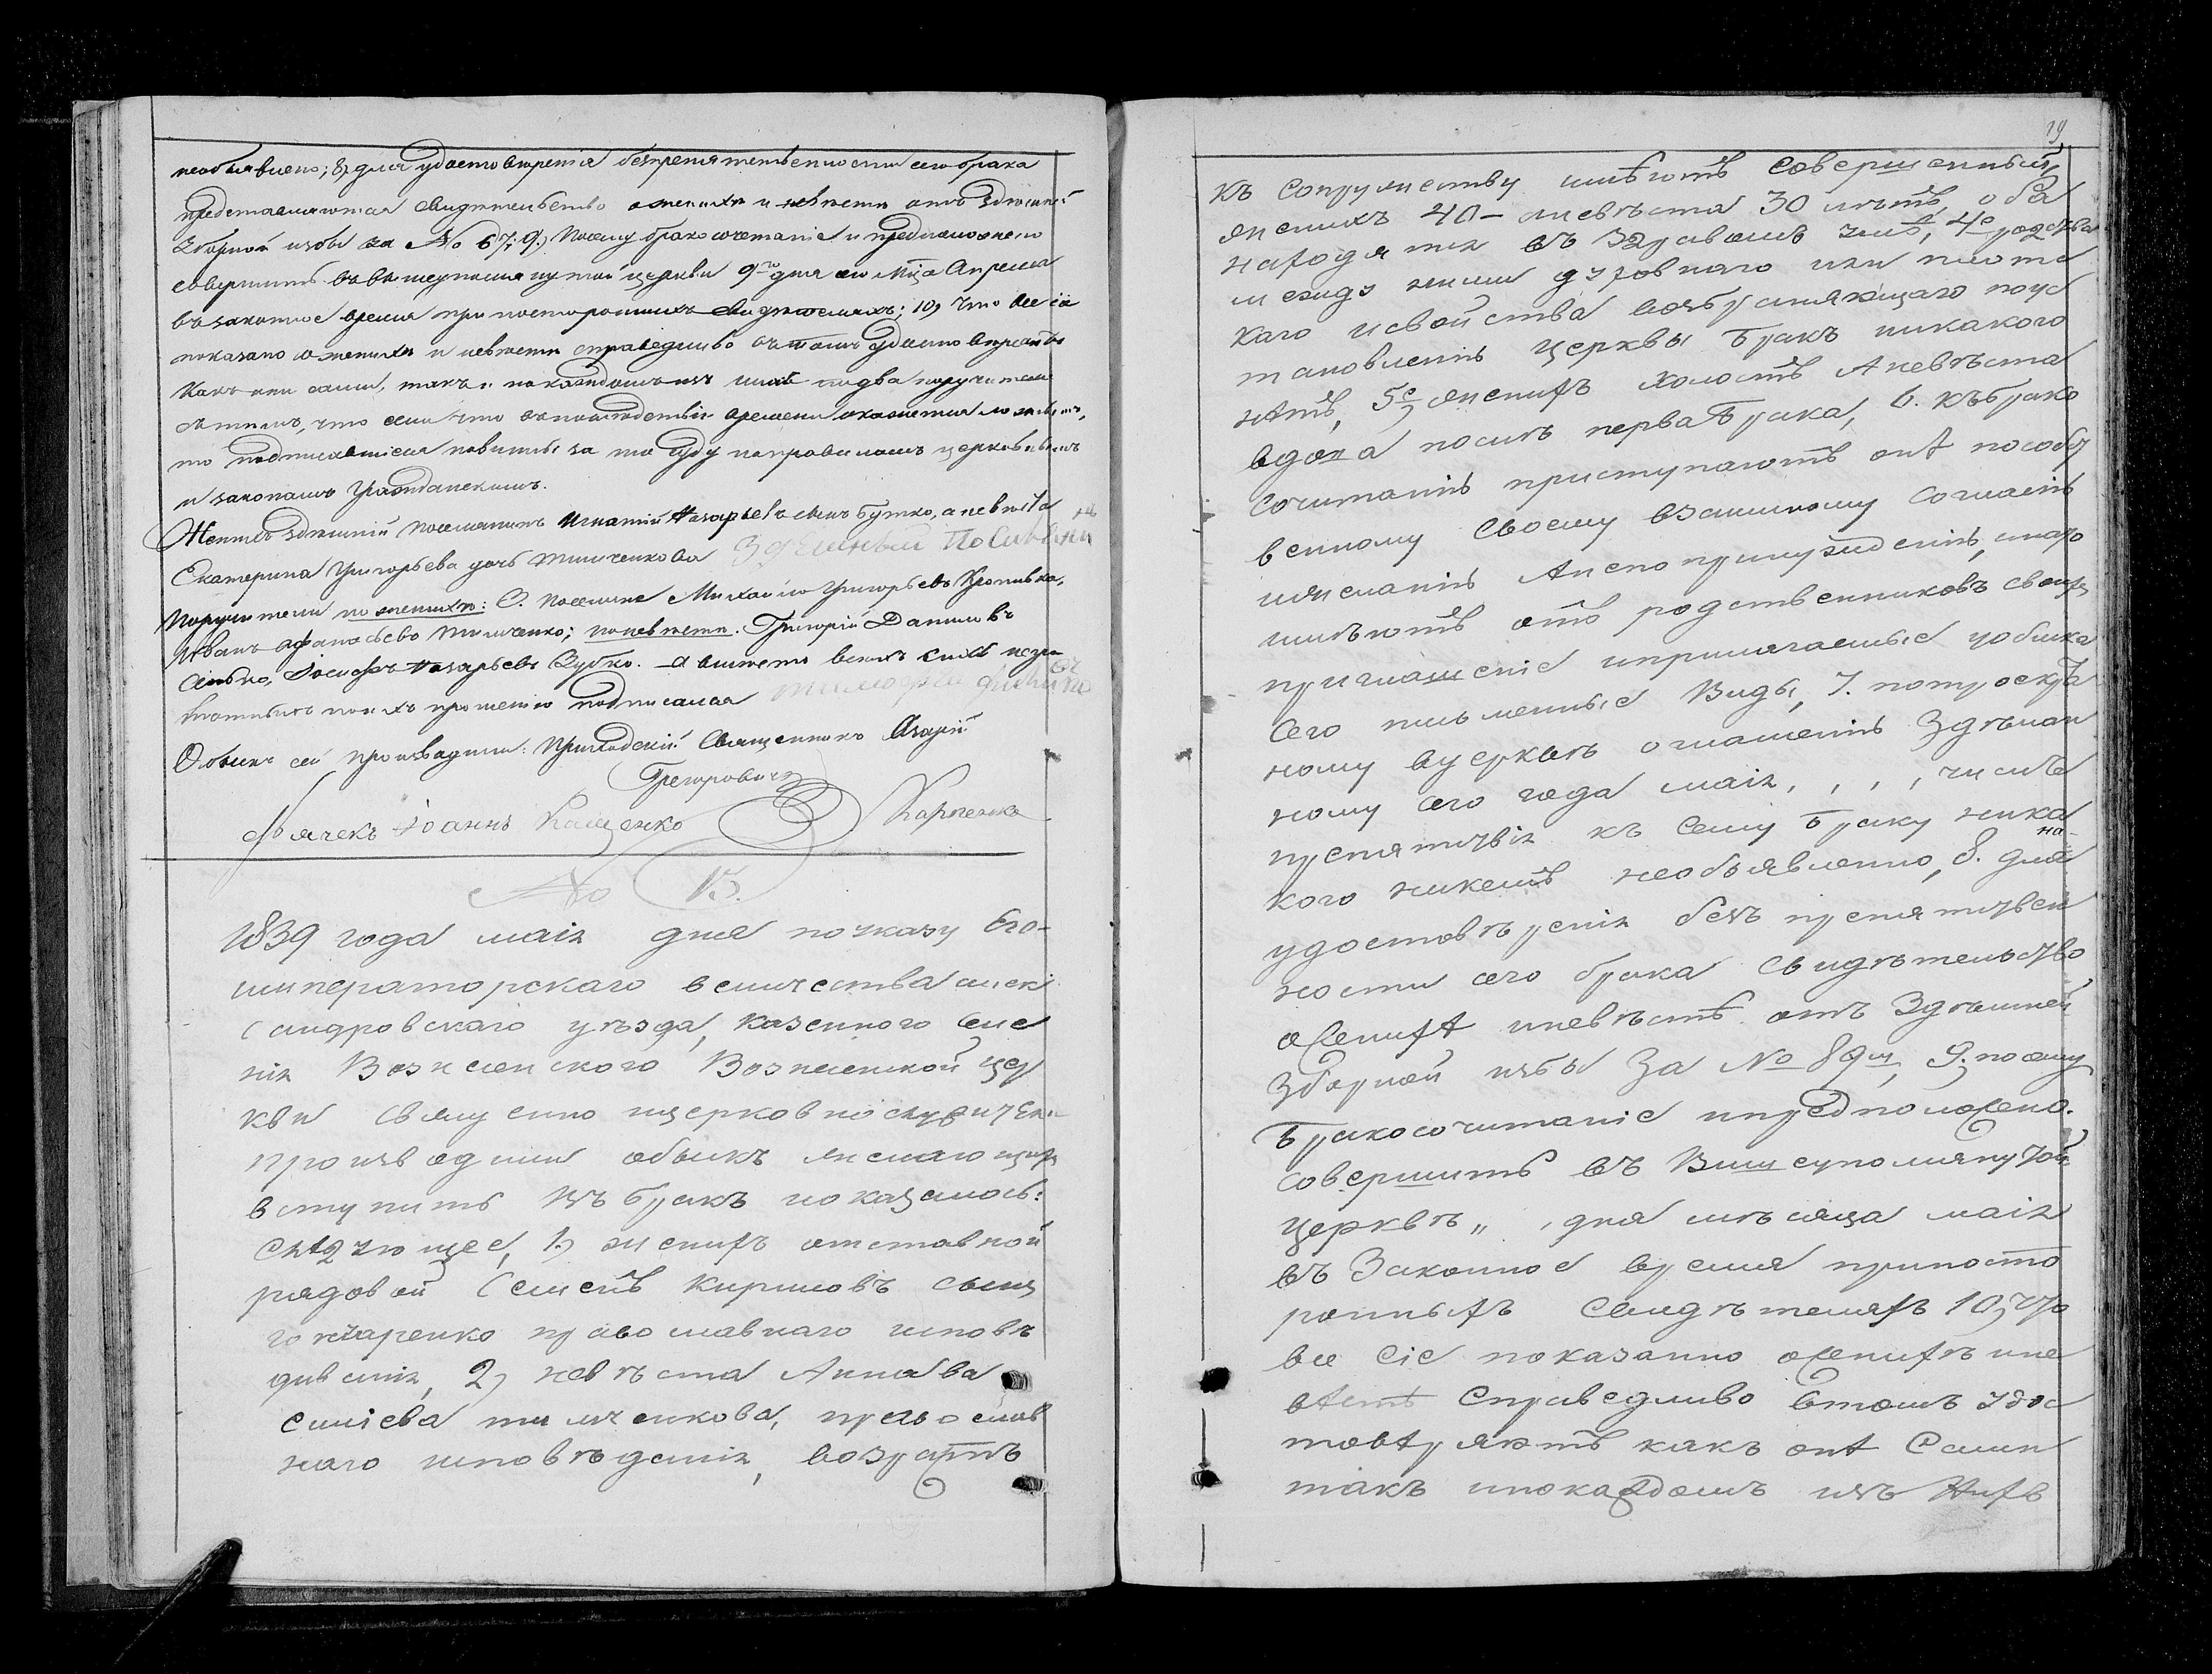 необъявлено; 8) для удостовѣренія безпрепятственности сего брака
представляются свидѣтельство о женихѣ и невѣстѣ отъ здѣшней
Зборной избы за No 67; 9.) Посему бракосочетаніе и предположено
совершить въ вышеупомянутой церкви 9го дня сего мца Апреля
въ законное время при постороннихъ свидѣтеляхъ; 10, что все сіе
показано о женихѣ и невѣстѣ справедливо въ томъ удостовѣряютъ
какъ они сами, такъ и по каждомъ изъ нихъ по два поручителя
съ тѣмъ, что если что въ послѣдствіи времени окажется ложнымъ,
то подписавшіеся повинны за то суду по правиламъ церковнымъ
и законамъ гражданскимъ.
Женихъ здѣшній поселянинъ Игнатій Назарьевъ сынъ Бутко, а невѣста
Екатерина Григорьева дочь Тимченкова
Поручители по женихѣ: С. Поселяне Михайло Григорьевъ Кропивка,
Иванъ Афанасьевъ Тимченко; по невѣстѣ. Григорій Даниловъ
Іосифъ Назарьевъ Зубко. а вмѣсто всѣхъ сихъ негра
мотныхъ по ихъ прошенію подписался
Обыскъ сей производили: Приходскій Священникъ Азарій
Григоровичъ
Дьячекъ Іоаннъ Кащенко Карпенко
No 15.
1839 года маія дня по указу Его
императорскаго величества алек
сандровскаго уѣзда, казенного селе
нія Вознсенского Вознсенской цер
кви священно ицерковнослужители
производили обыкъ желающихъ
вступить въ бракъ и оказалось:
следующее, 1.) женихъ отставной
рядовой Семенъ Кириловъ сынъ
гончаренко православнаго исповѣ
диванія, 2) невѣста Анна Ва
силіева тимченкова, православ
наго исповѣданія, возрастъ
19
къ сопружеству имѣютъ совершенный,
женихъ 40 – аневѣста 30 лѣтъ, оба
находятся въ здравомъ умѣ, 4е родства
между ними духовнаго или плотс
каго и свойства возбраняющаго поус
тановленію церквы бракъ никакого
нѣтъ, 5е женихъ холостъ А невѣста
вдова послѣ перва брака, 6. къ брако
сочитанію приступаютъ онѣ по собст
венному своему взаимному согласію
ижеланію Анепо принужденію, инато
имѣютъ отъ родственниковъ своихъ
приглашеніе иприлагаемые уобыка
сего письменные Виды, 7. потроекрат
ному вцерквѣ оглашенію Здѣлан
ному сего года маія, , , , числѣ
препятствія къ сему браку ника
кого никемъ необъявленно, 8. для
удостовѣренія безъ препятствен
ности сего брака свидѣтельство
оженихѣ иневѣстѣ отъ Здѣшней
Зборной избы За No 89м, 9. посему
Бракосочитаніе ипредположено.
совершить въ Вышеупомянутой
церквѣ „ , дня мѣсяца маія
въ Законное время припосто
ронныхъ Свидѣтеляхъ 10, что
все сіе показанно оженихѣ ине
вѣстѣ Справедливо втомъ удос
товѣряютъ какъ онѣ Сами
такъ ипокаждомъ изъ Нихъ